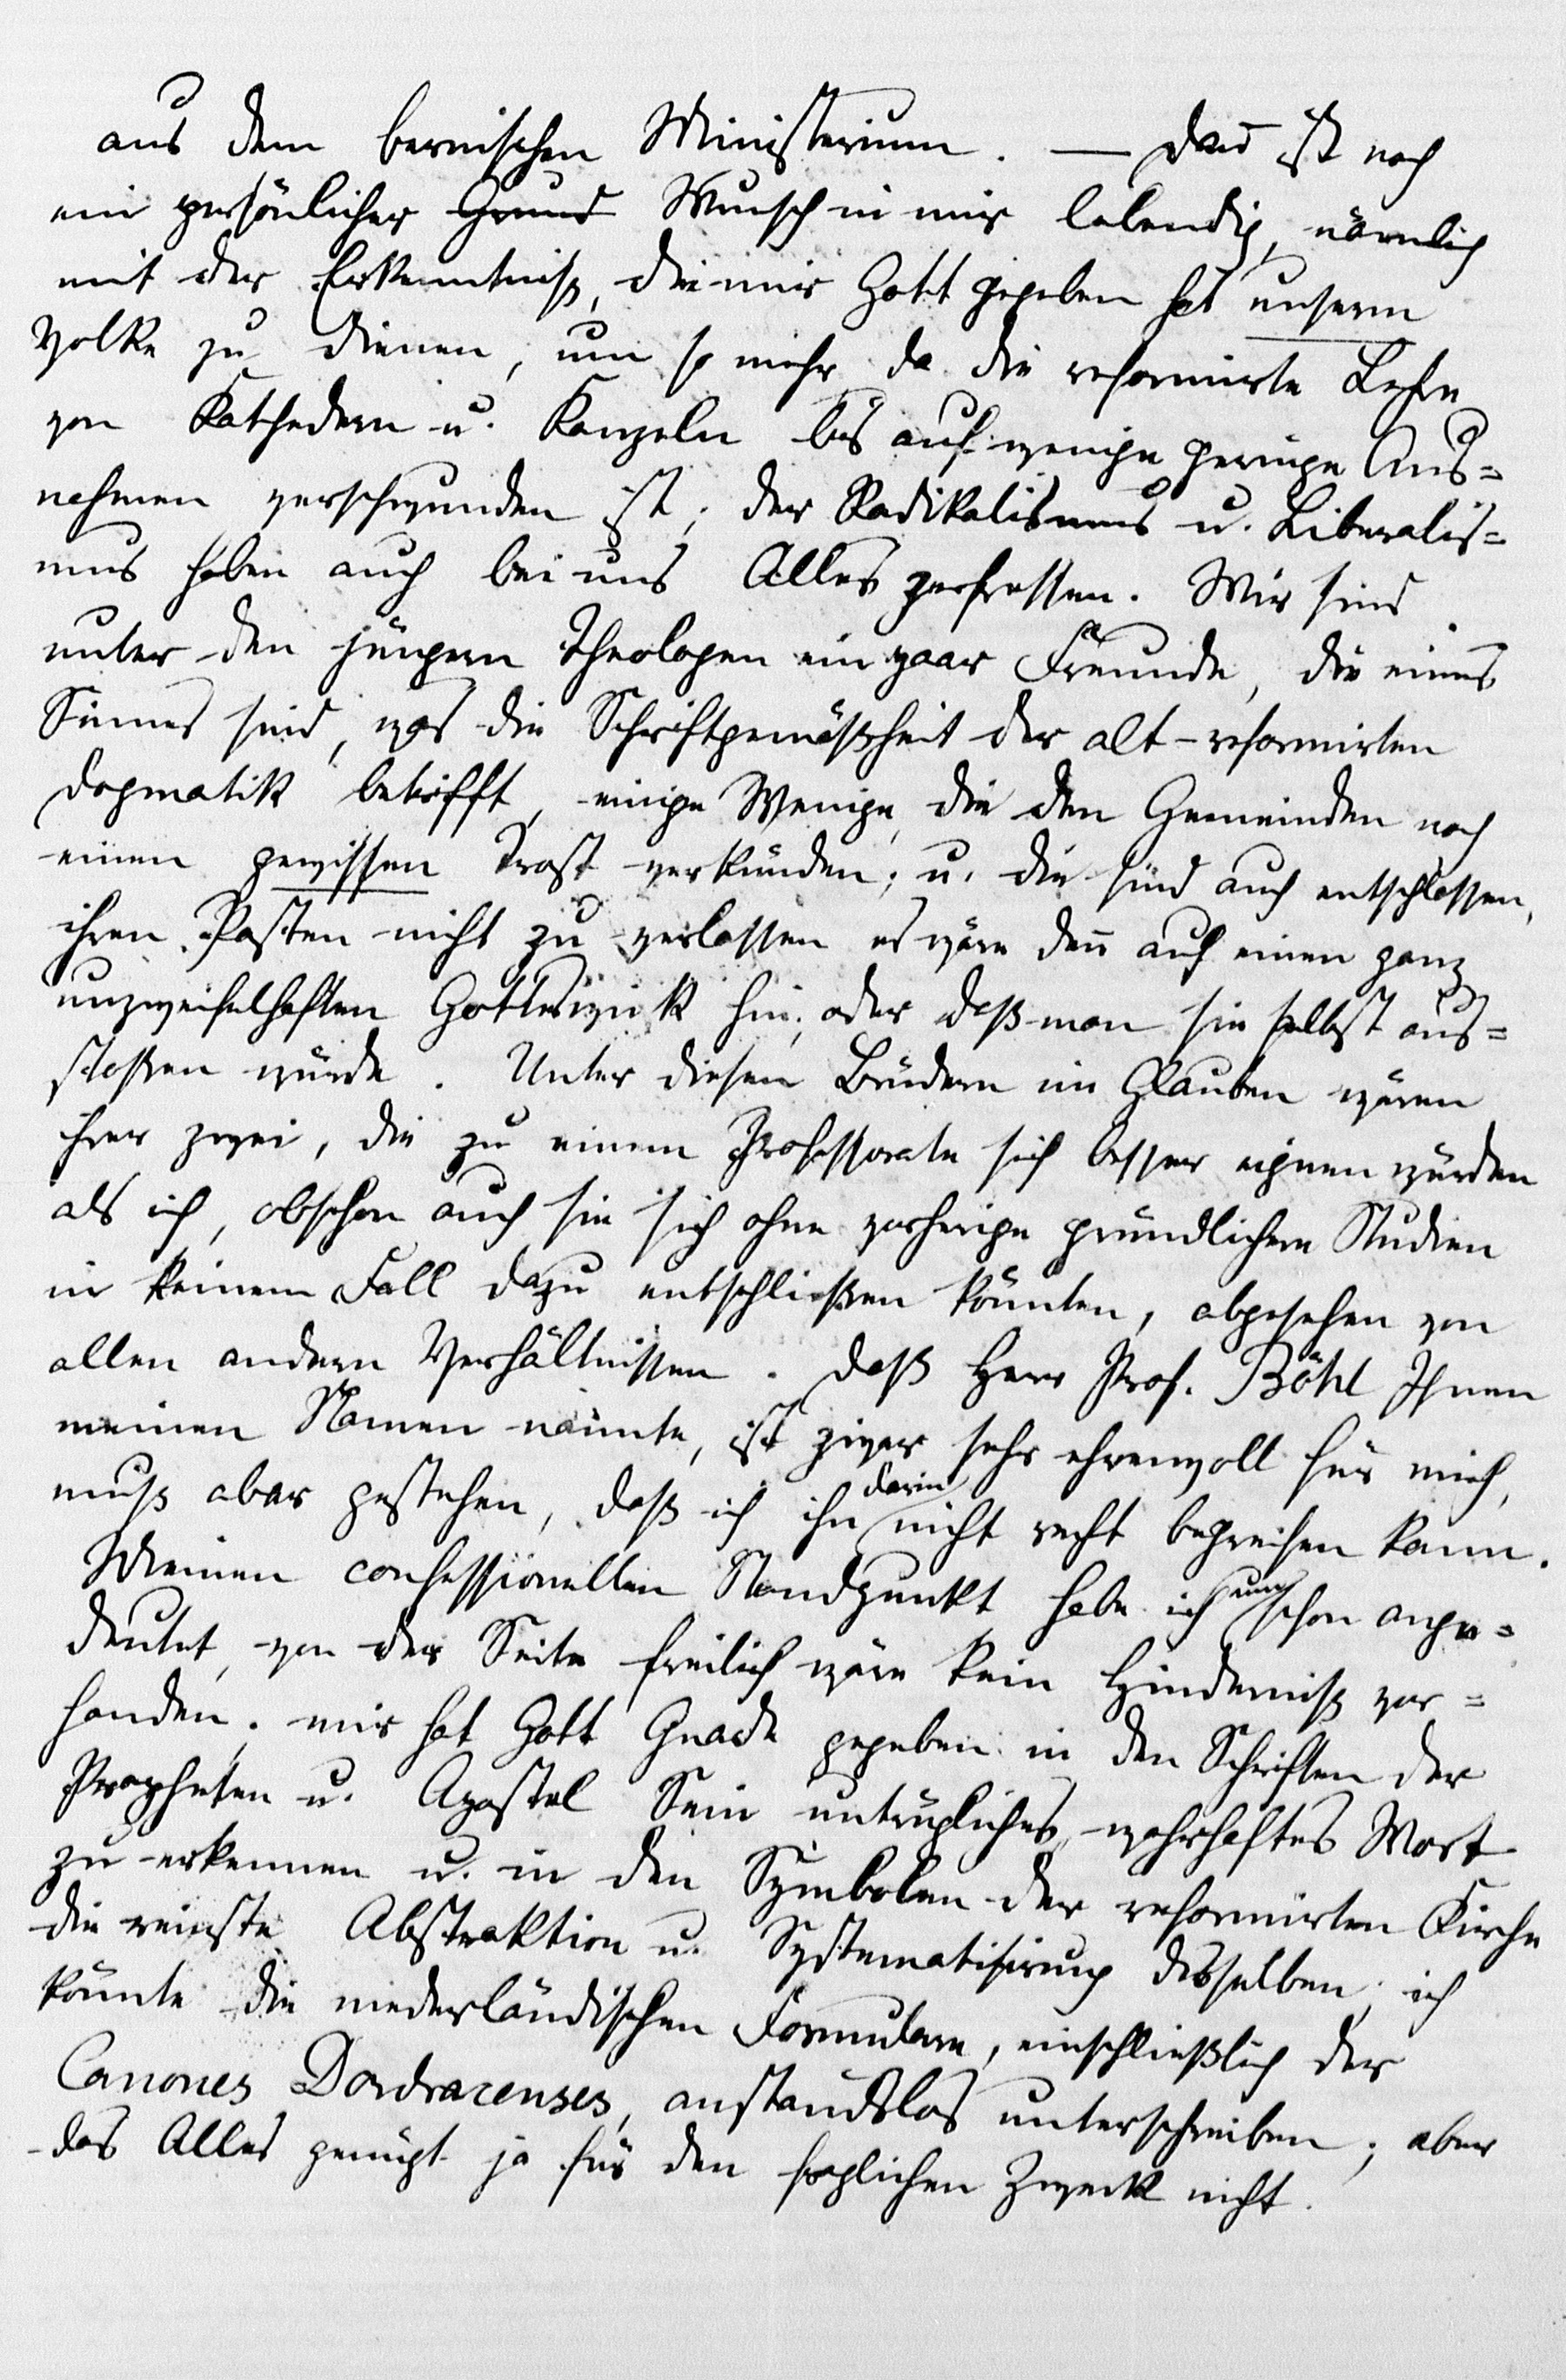 aus dem bernischen Ministerium. — Dann ist noch
ein persönlicher Grund Wunsch in mir lebendig, nämlich
mit der Erkenntniß, die mir Gott gegeben hat unserm
Volke zu dienen, um so mehr da die reformirte Lehre
von Kathedern u. Kanzeln bis auf wenige geringe Aus=
nahmen verschwunden ist; der Radikalismus u. Liberalis=
mus haben auch bei uns Alles zerfressen. Wir sind
unter den jüngern Theologen ein paar Freunde, die eines
Sinnes sind, was die Schriftgemäßheit der alt-reformirten
Dogmatik betrifft, einige Wenige, die den Gemeinden noch
einen gewissen Trost verkünden; u. die sind auch entschlossen,
ihren Posten nicht zu verlassen es wäre denn auf einen ganz
unzweifelhaften Gotteswink hin, oder daß man sie selbst aus=
stoßen würde. Unter diesen Brüdern im Glauben wären
ihrer zwei, die zu einem Professorate sich besser eignen würden
als ich, obschon auch sie sich ohne vorherige gründlichere Studien
in keinem Fall dazu entschließen könnten, abgesehen von
allen andern Verhältnissen. Daß Herr Prof. Böhl Ihnen
meinen Namen nannte, ist zwar sehr ehrenvoll für mich,
muß aber gestehen, daß ich ihn darin nicht recht begreifen kann.
Meinen confessionellen Standpunkt habe ich nun schon ange=
deutet, von der Seite freilich wäre kein Hinderniß vor=
handen; mir hat Gott Gnade gegeben in den Schriften der
Propheten u. Apostel Sein untrügliches, wahrhaftes Wort
zu erkennen u. in den Symbolen der reformirten Kirche
die reinste Abstraktion u. Systematisirung desselben; ich
könnte die niederländischen Formulare, einschließlich der
Canones Dordracenses, anstandslos unterschreiben; aber
das Alles genügt ja für den fraglichen Zweck nicht.